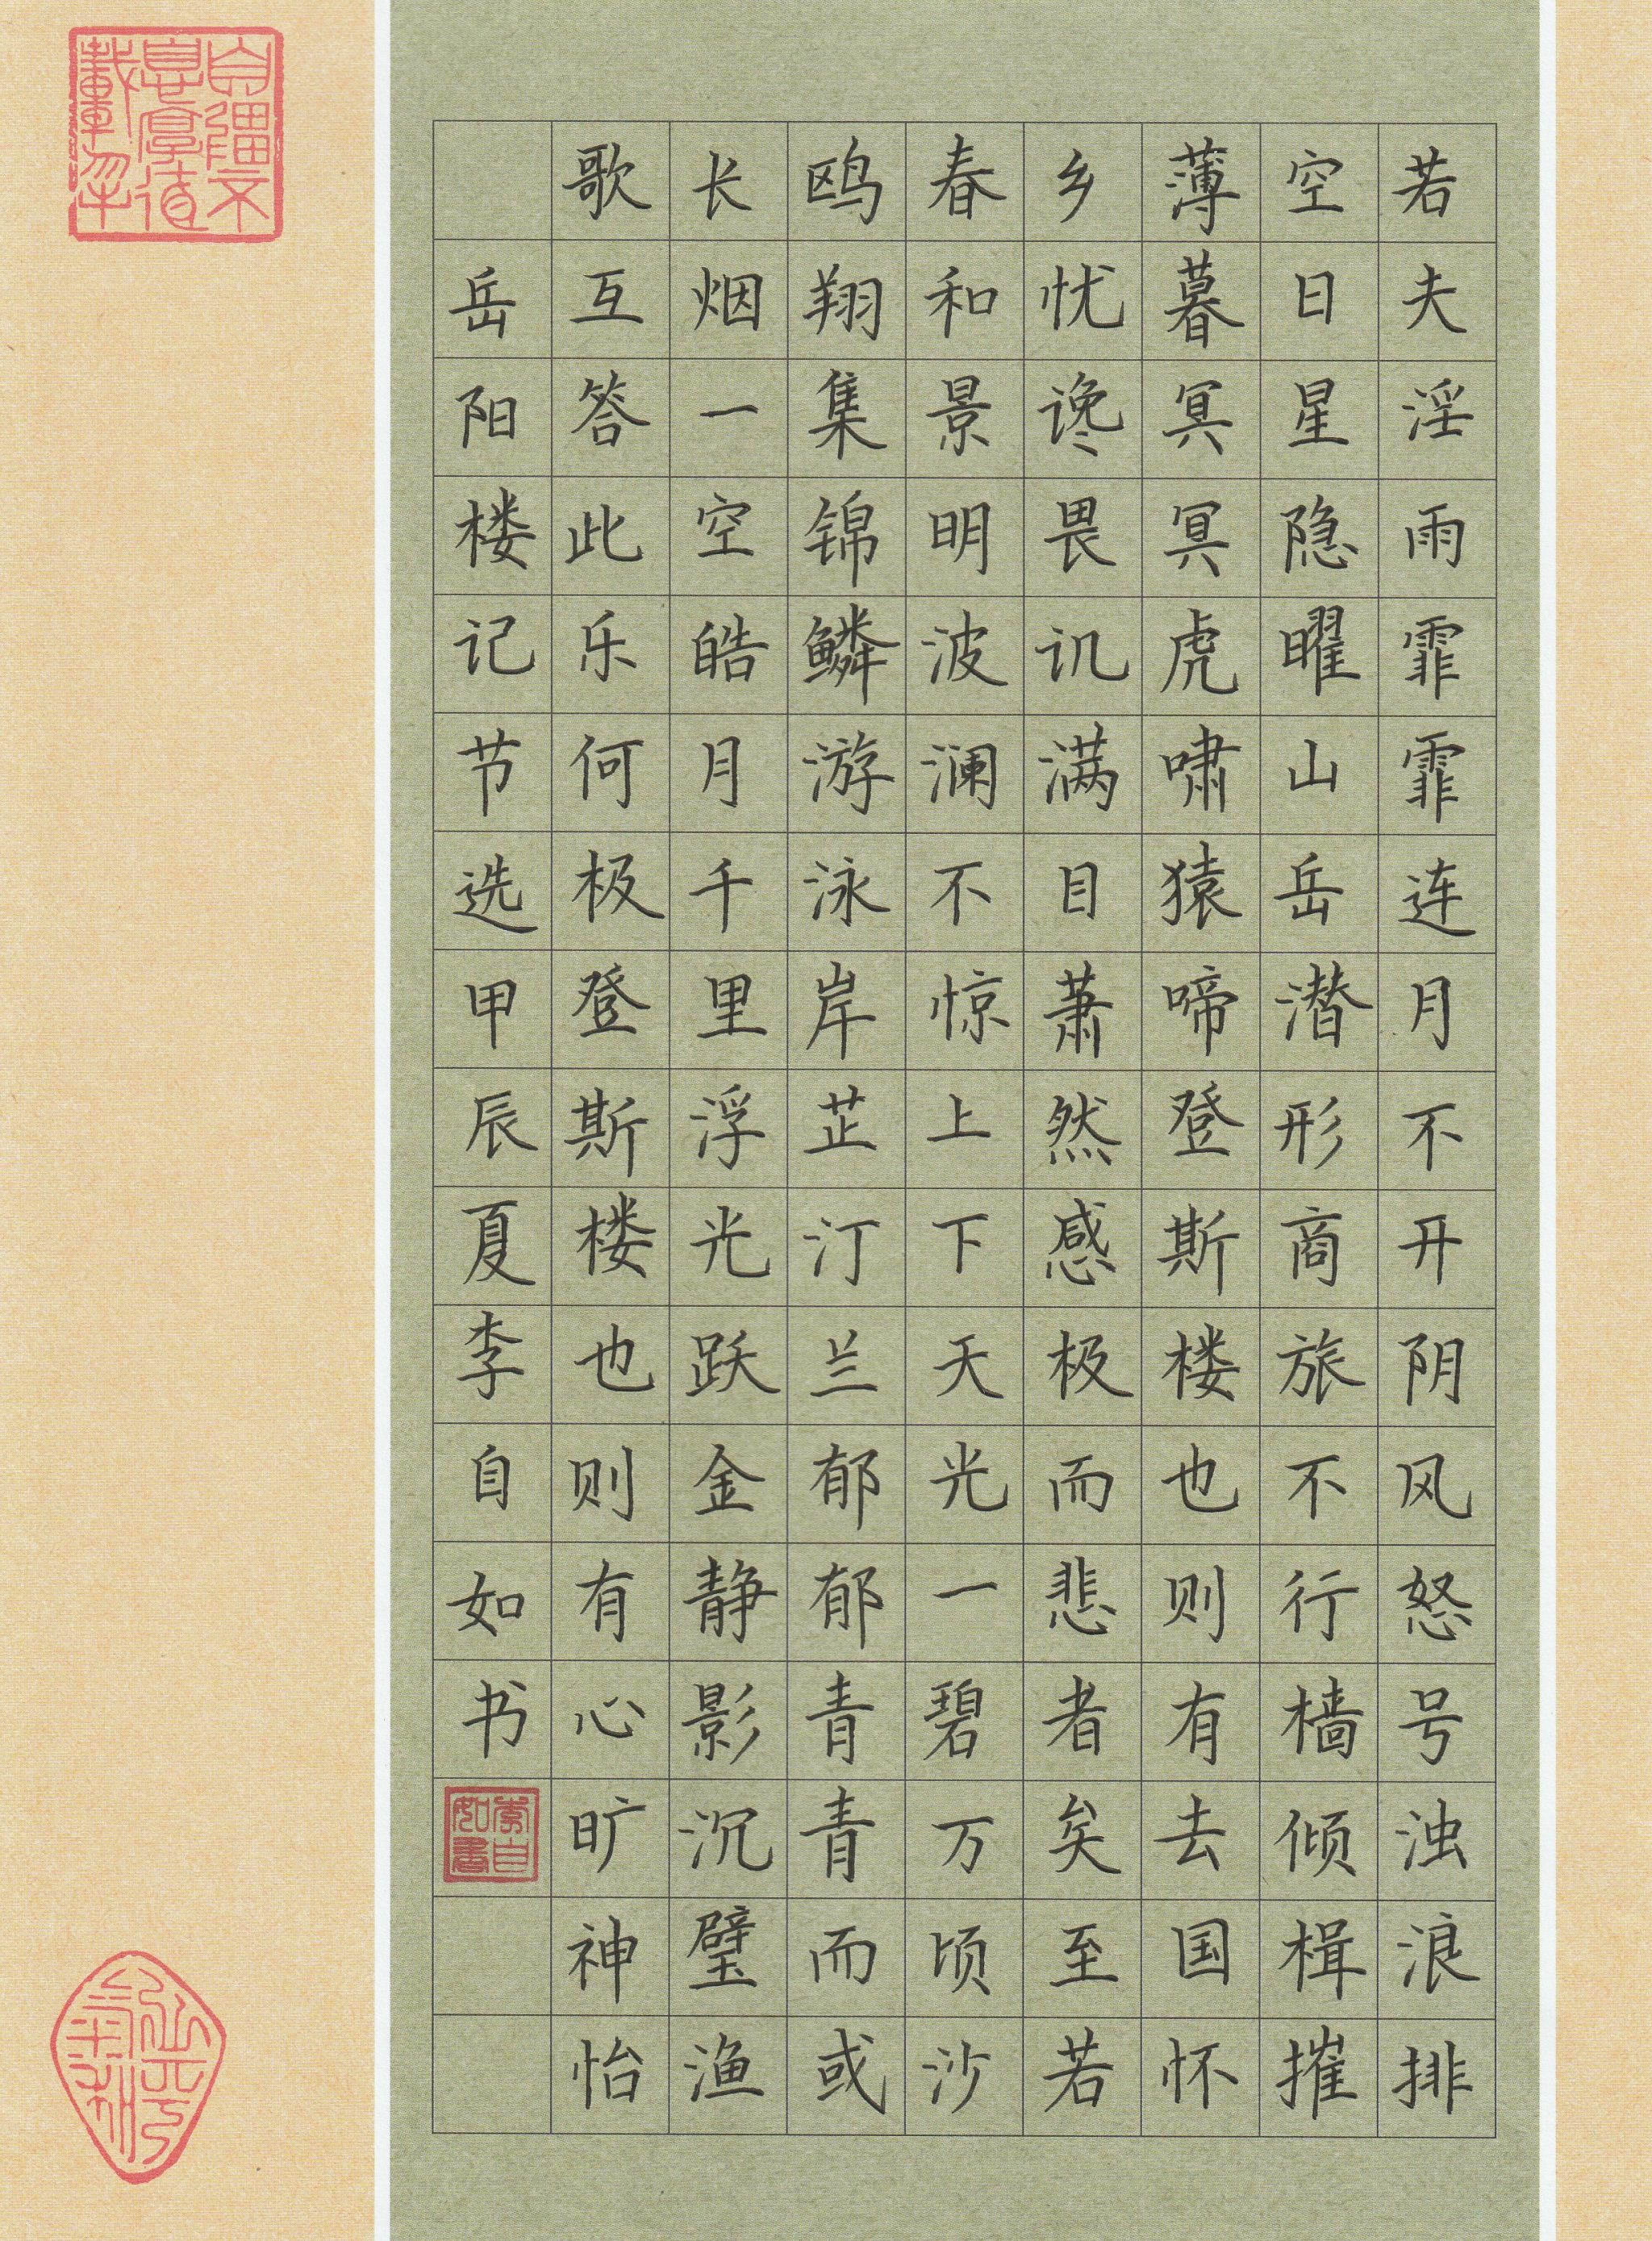 若夫淫雨霏霏连月不开阴风怒号浊浪排
空日星隐曜山岳潜形商旅不行樯倾楫摧
薄暮冥冥虎啸猿啼登斯楼也则有去国怀
乡忧谗畏讥满目萧然感极而悲者矣至若
春和景明波澜不惊上下天光一碧万顷沙
鸥翔集锦鳞游泳岸芷汀兰郁郁青青而或
长烟一空皓月千里浮光跃金静影沉璧渔
歌互答此乐何极登斯楼也则有心旷神怡
岳阳楼记节选甲辰夏李自如书
李自如書